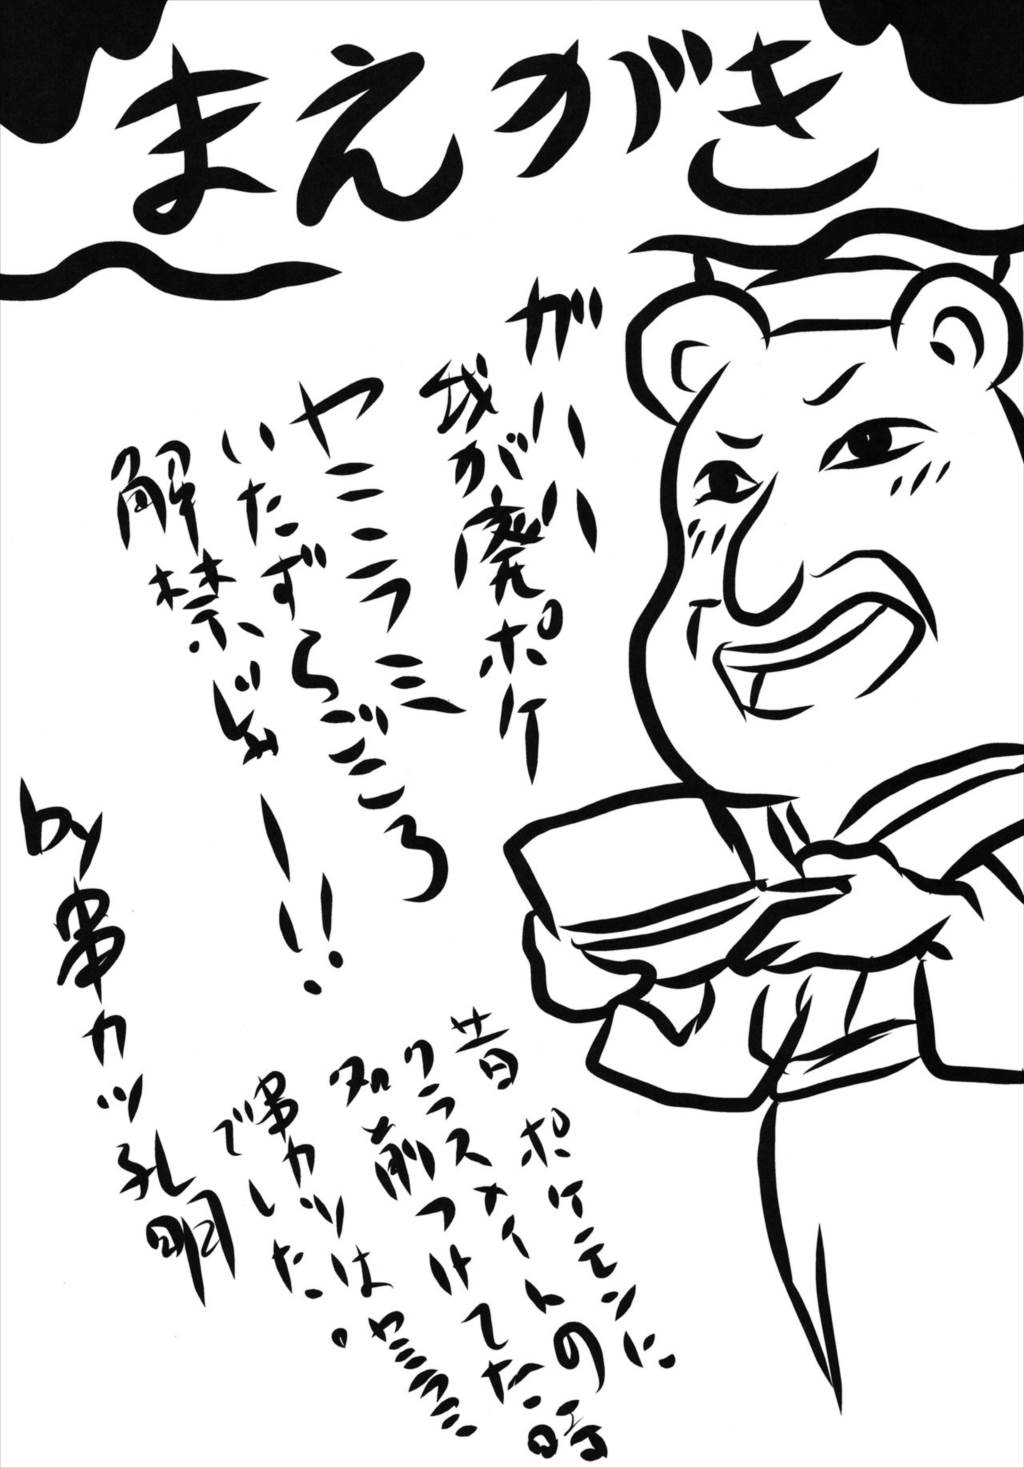 まえがき
がハハハ
我が廃ポケ
ヤミラミ
いたずらごころ
解禁じゃーい!!
by串カツ孔明
昔ポケモンに
クラスメイトの時
名前つけてた
串カツはヤミラミ
でした。